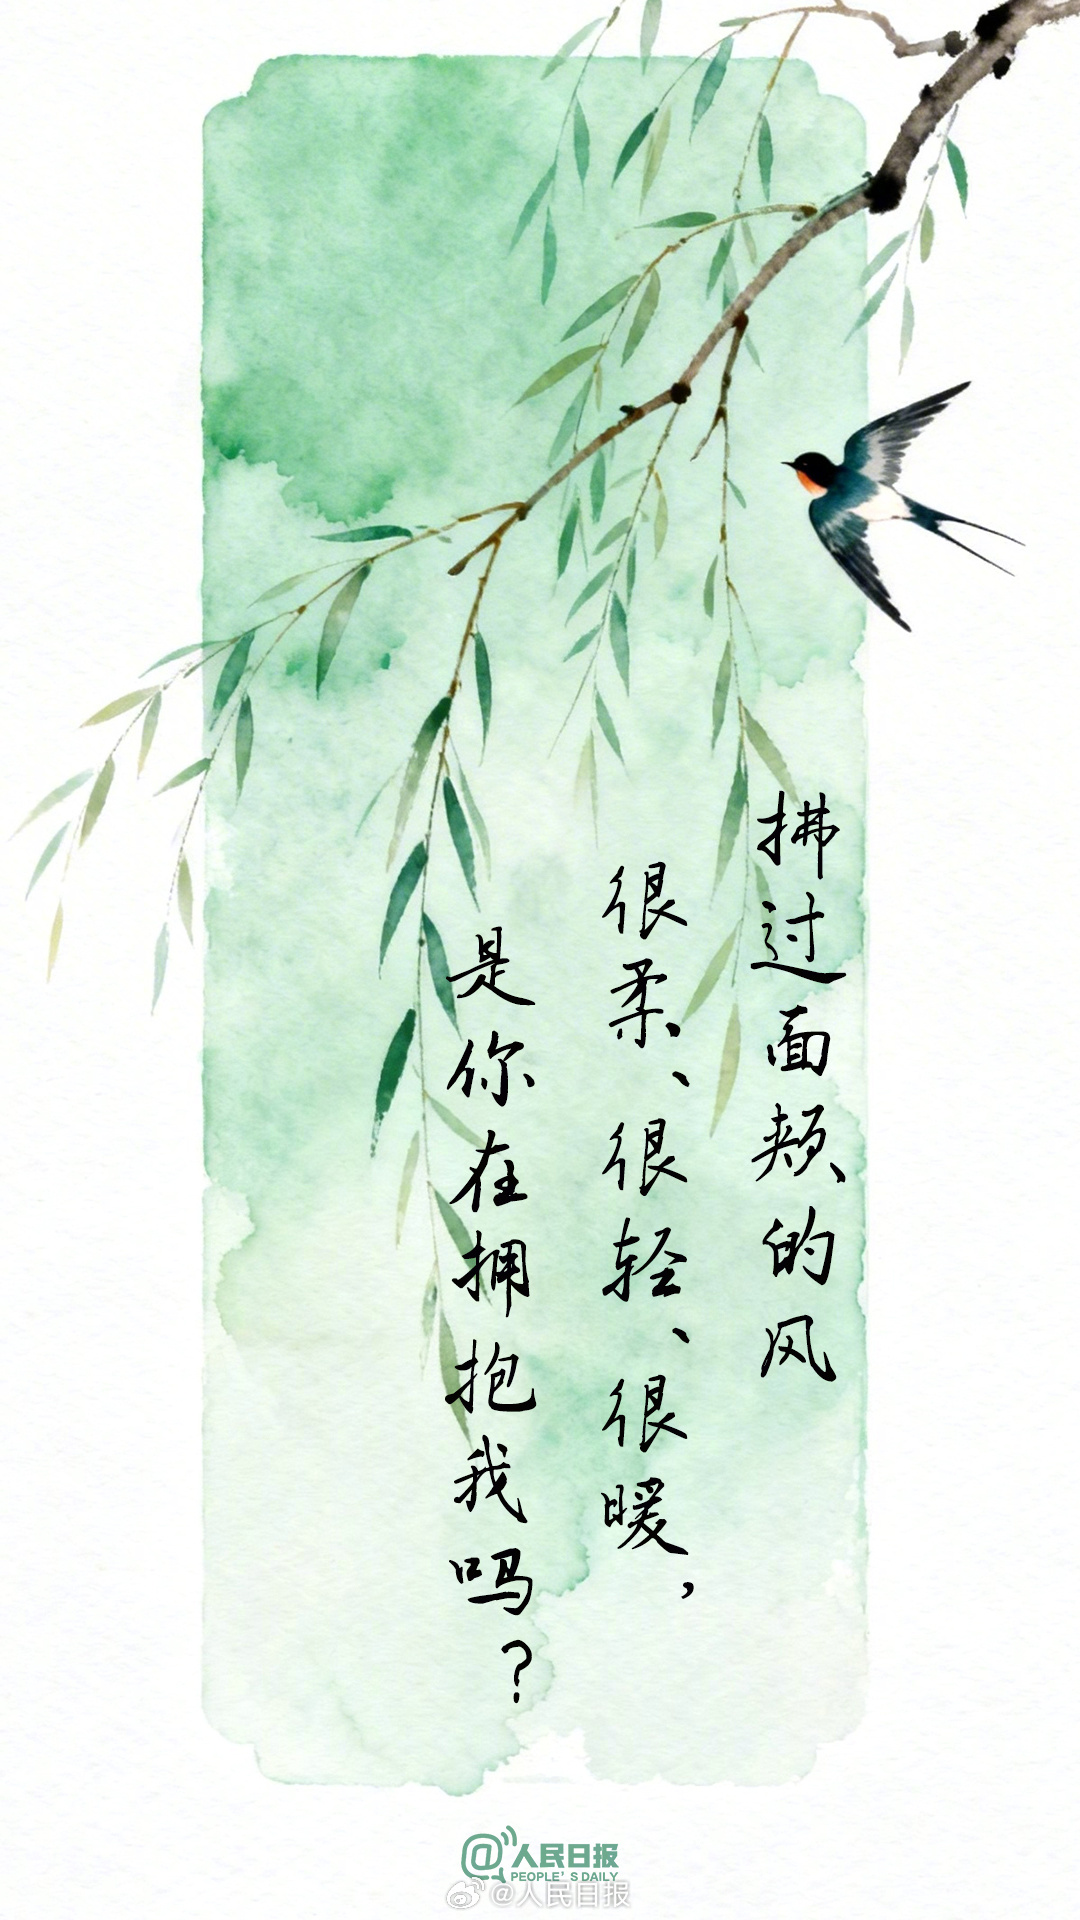 拂过面颊的风
很柔、很轻、很暖，
是你在拥抱我吗？
@人民日报
PEOPLE'S DAILY
@人民日报